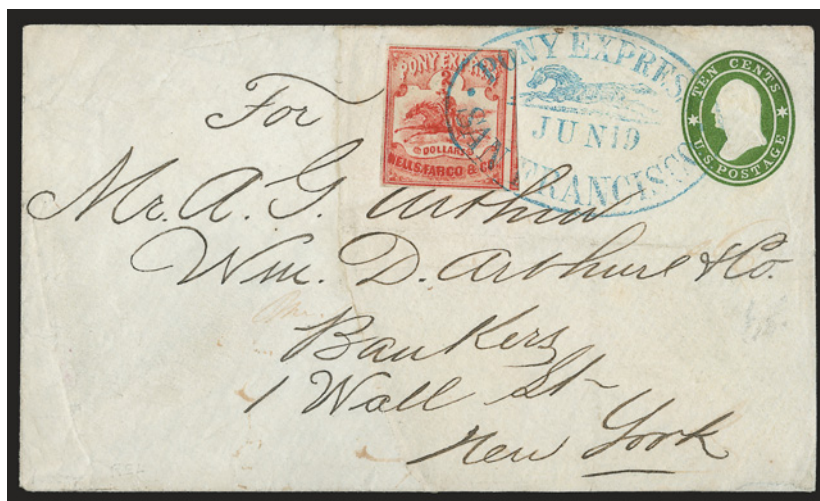 PONY EXPRESS
2
DOLLARS
WELLS, FARGO & CO.
PONY EXPRESS
JUN 19
SAN FRANCISCO
TEN CENTS
U.S. POSTAGE
For
Mr. A. G. Arthur
Wm. D. Arthur & Co.
Bankers
1 Wall St
New York